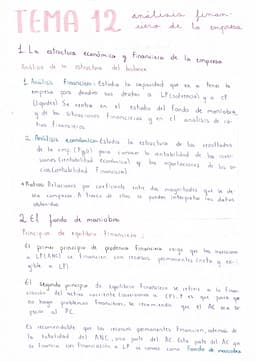 TEMA 12 análisis finan-
ciero de la empresa
1. La estructura económica y financiera de la empresa
Análisis de la estructura del balance
1. Análisis Financiero: Estudia la capacidad que es a tener la
empresa para devolver sus deudas a LP (solvencia) y a CP
(liquidez). Se centra en el estudio del fondo de maniobra,
y de las situaciones financieras y en el análisis de ra-
tios financieros
2. Análisis económico: Estudia la estructura de los resultados
de la emp. (PyG) para conocer la rentabilidad de las inver-
siones (rentabilidad económica) y las aportaciones de los so-
cios (rentabilidad financiera)
* Ratios: Relaciones por coeficiente entre dos magnitudes que se de-
sea comparar. A través de ellos se pueden interpretar los datos
obtenidos
2. El fondo de maniobra
Principios de equilibrio financiero:
El primer principio de prudencia financiera exige que las inversiones
a LP (ANC) se financien con recursos permanentes (neto y exi-
gible a LP)
El segundo principio de equilibrio financiero se refiere a la finan-
ciación del activo corriente (inversiones a CP). Y es que para que
no haya problemas financieros, se recomienda que el AC sea >
pasivo al PC.
Es recomendable que los recursos permanentes financien, además de
la totalidad del ANC, una parte del AC. Esta parte del AC que
se financia con financiación a LP se conoce como Fondo de maniobra